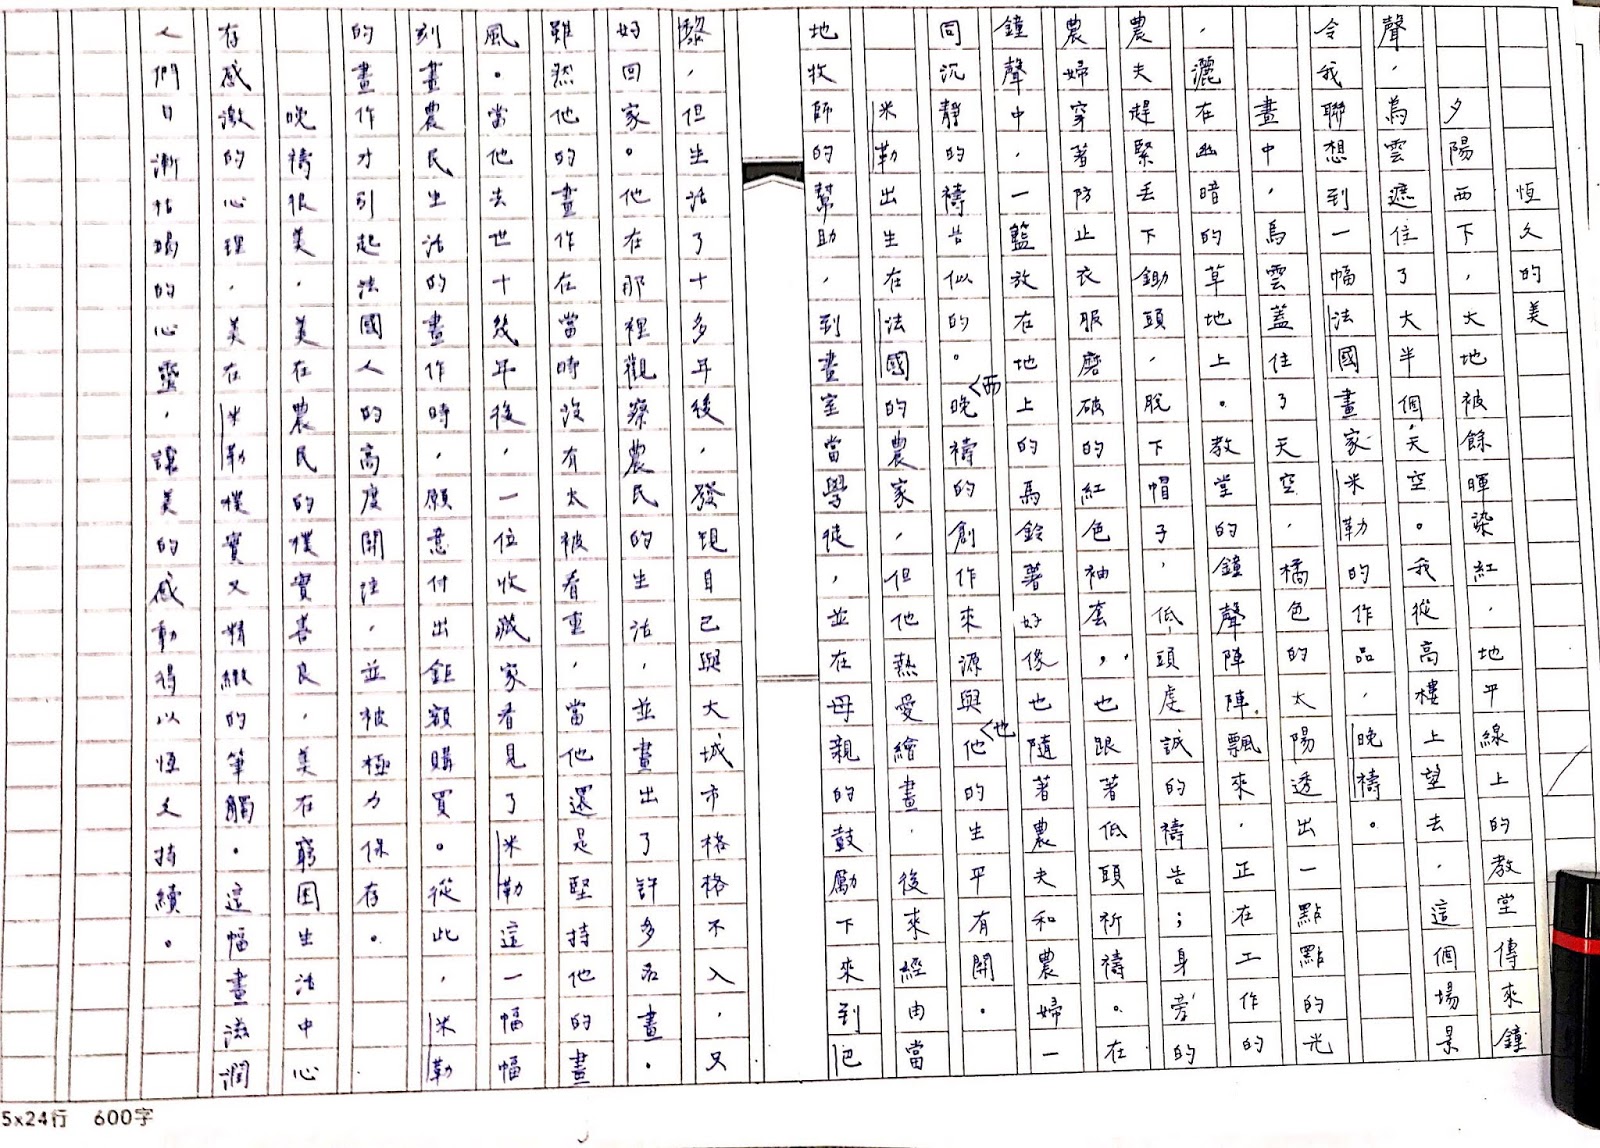 恆久的美
夕陽西下，大地被餘暉染紅，地平線上的教堂傳來鐘
聲，烏雲遮住了大半個天空。我從高樓上望去，這個場景
令我聯想到一幅法國畫家米勒的作品，晚禱。
畫中，烏雲蓋住了天空，橘色的太陽透出一點點的光
，灑在幽暗的草地上。教堂的鐘聲陣陣飄來，正在工作的
農夫趕緊丟下鋤頭，脫下帽子，低頭虔誠的禱告；身旁的
農婦穿著防止衣服磨破的紅色袖套，也跟著低頭祈禱。在
鐘聲中，一籃放在地上的馬鈴薯好像也隨著農夫和農婦一
同沉靜的禱告似的。而晚禱的創作來源與也他的生平有關。
米勒出生在法國的農家，但他熱愛繪畫，後來經由當
地牧師的幫助，到畫室當學徒，並在母親的鼓勵下來到巴
黎，但生活了十多年後，發現自己與大城市格格不入，只
好回家。他在那裡觀察農民的生活，並畫出了許多名畫。
雖然他的畫作在當時沒有太被看重，當他還是堅持他的畫
風。當他去世十幾年後，一位收藏家看見了米勒這一幅幅
刻畫農民生活的畫作時，願意付出鉅額購買。從此，米勒
的畫作才引起法國人的高度關注，並被極力保存。
晚禱很美，美在農民的樸實善良，美在窮困生活中心
存感激的心理，美在米勒樸實又精緻的筆觸。這幅畫滋潤
人們日漸枯竭的心靈，讓美的感動得以恆久持續。
5x24行 600字